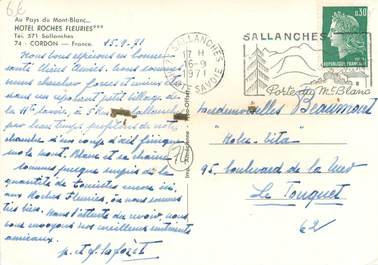 Au Pays du Mont-Blanc...
HOTEL ROCHES FLEURIES***
Tél. 571 Sallanches
74 - CORDON — France.
15.9.71
Nous vous espérons en bonne
santé chères amies. nous sommes
venus chercher forces et amitiés
dans un reposant petit village de
la Hte Savoie, à 5 Kms de Sallanches
par beau temps profitons de notre
chambre, d'un coup d'œil féerique
sur le Mont Blanc et sa chaîne
Sommes presque surpris de la
quantité de touristes encore ici
aux Roches Fleuries, où nous sommes
très bien. Dans l'attente du revoir, nous
vous envoyons nos meilleurs sentiments
amicaux.
SALLANCHES
17 H
16-9
1971
HTE SAVOIE
SALLANCHES
Porte du Mt Blanc
0,30
REPUBLIQUE FRANCAISE
Mesdemoiselles Beaumont
"Hole-Vita"
95, boulevard de la Mer
Le Touquet
62